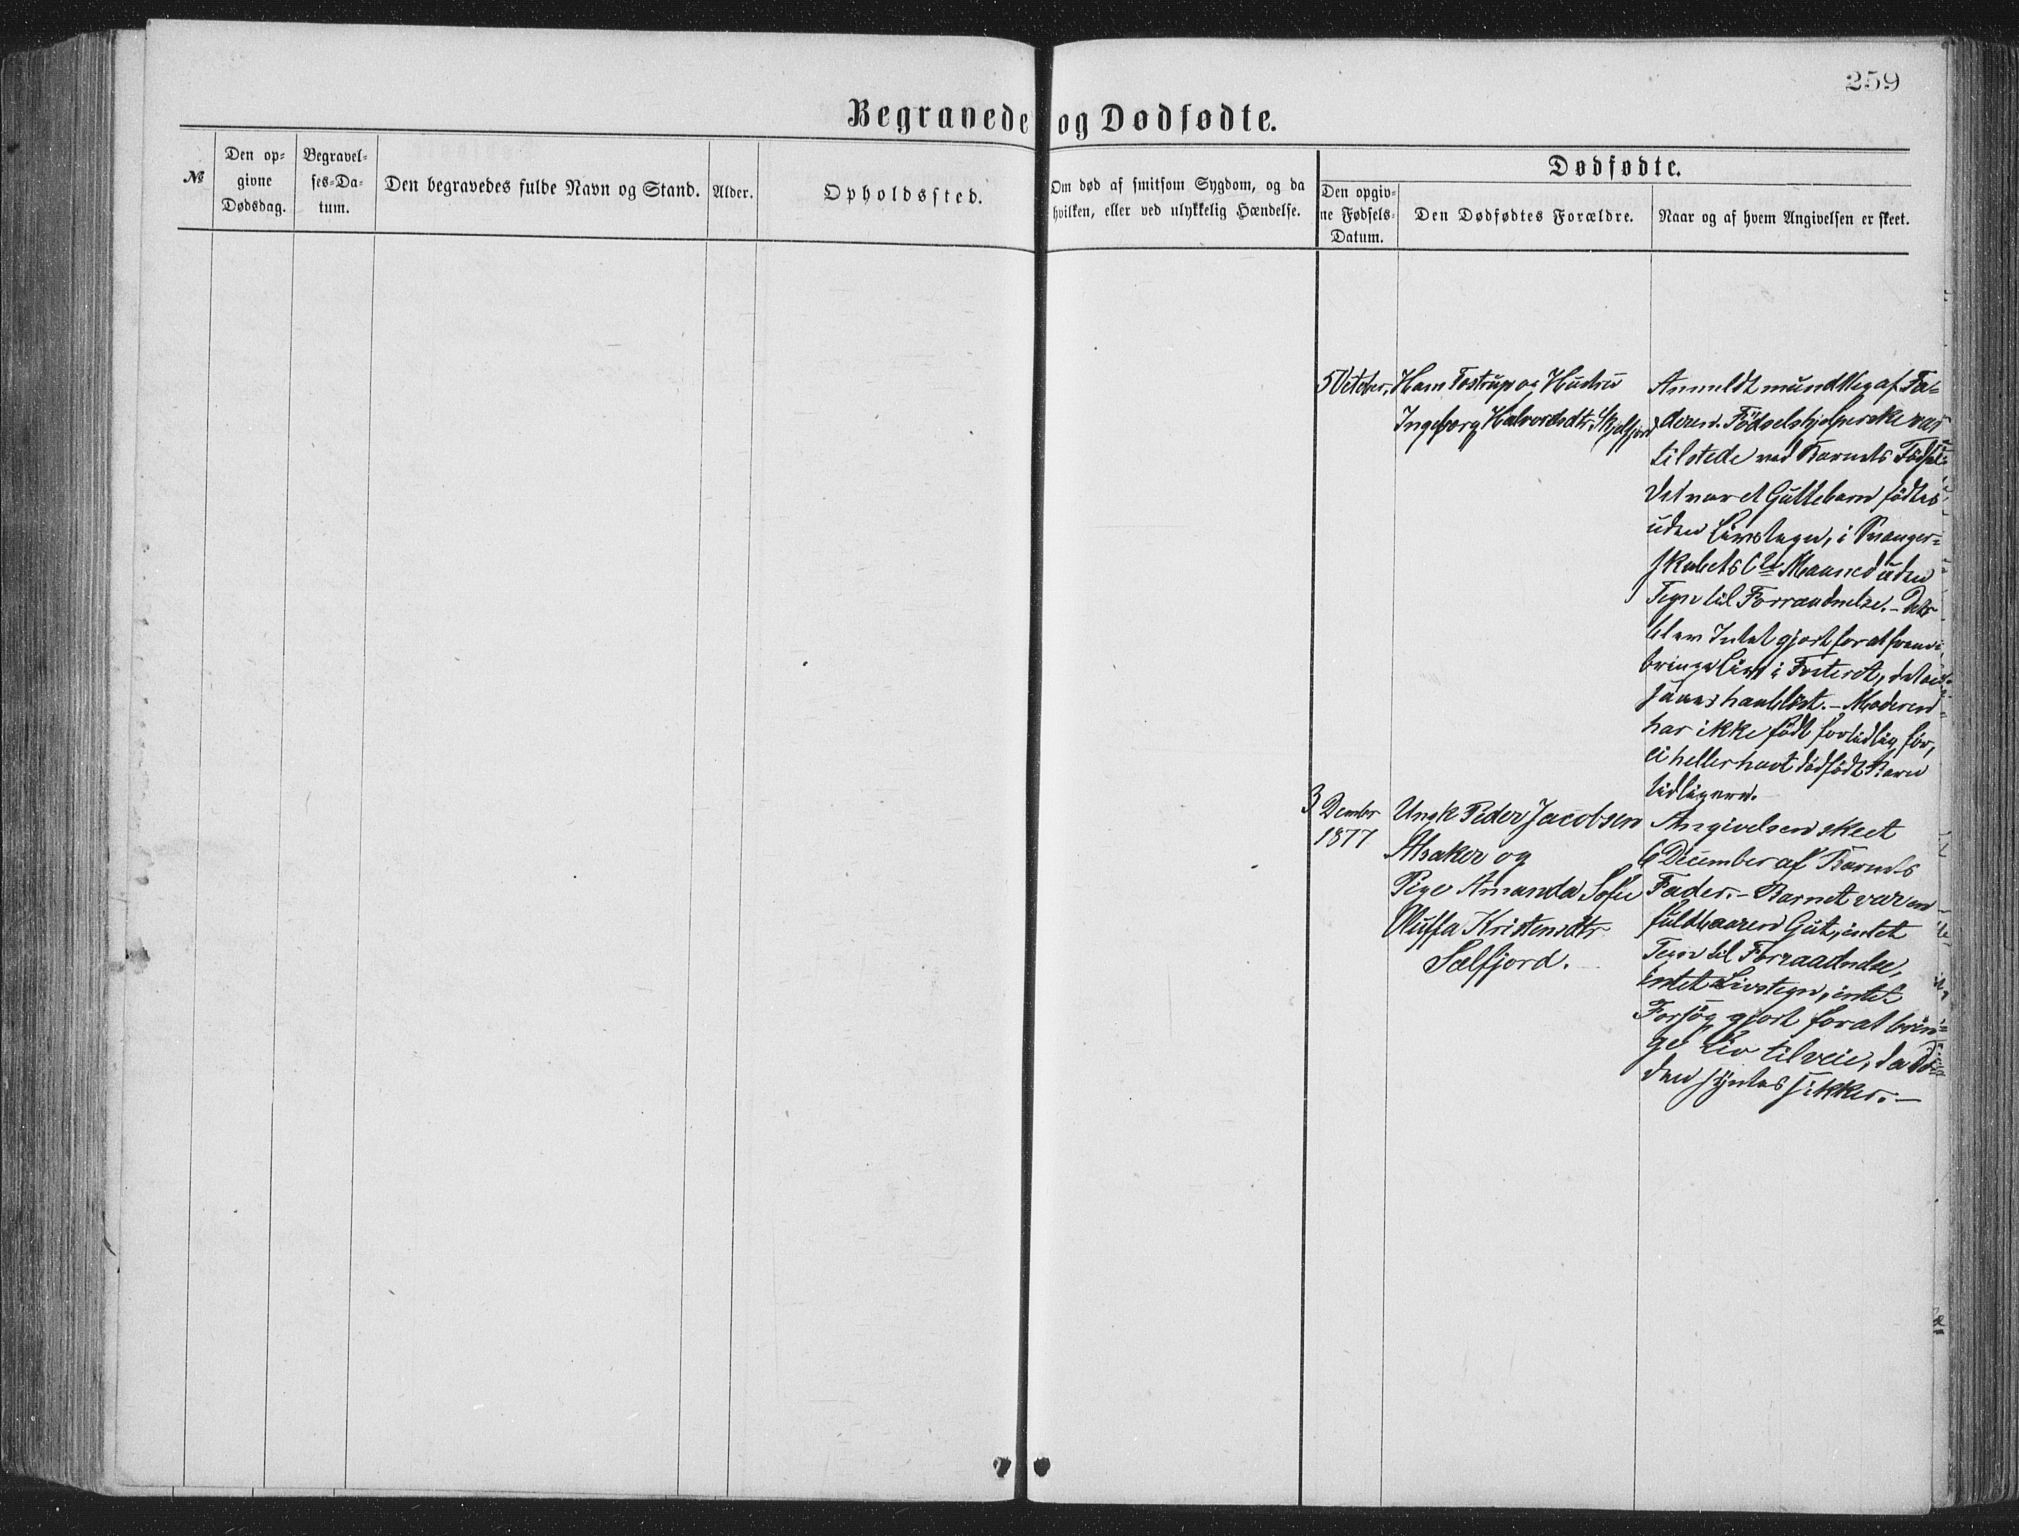 259
Begravede og Dødfødte.
№
Den op-
givne
Dødsdag.
Begravel-
ses-Da-
tum.
Den begravedes fulde Navn og Stand.
Alder.
Opholdssted.
Om død af smitsom Sygdom, og da
hvilken, eller ved ulykkelig Hændelse.
Dødfødte.
Den opgiv-
ne Fødsels-
Datum.
Den Dødfødtes Forældre.
Naar og af hvem Angivelsen er skeet.
5 October,
Hans Tostrup og Hustru
Ingeborg Halvorsdtr Skjelfjord
Anmeldt mundtlig af Fa-
deren. Födselshjelperske var
tilstede ved Barnets Födsel
Det var et Guttebarn födtes
uden Livstegn, i Svanger-
skabets 6te Maaned uden
Tegn til Forraadnelse. –
blev Intet gjort for at frem-
bringe Liv i Fosteret,
haablöst. – Moderen
har ikke födt fortidlig för,
ei heller havt dödfödt Barn
tidligere.
3
Decmbr
1877
Ungk Peder Jacobsen
Alsaker og
Pige Amanda Sofie
Oluffa Kristensdtr
Selfjord.
Angivelsen skeet
6 December af Barnets
Fader. – Barnet var en
fuldbaaren Gut, intet
Tegn til Forraadnelse,
intet Livstegn, intet
Forsög gjort for at brin-
ge Liv tilveie, da Dö-
den syntes sikker. –